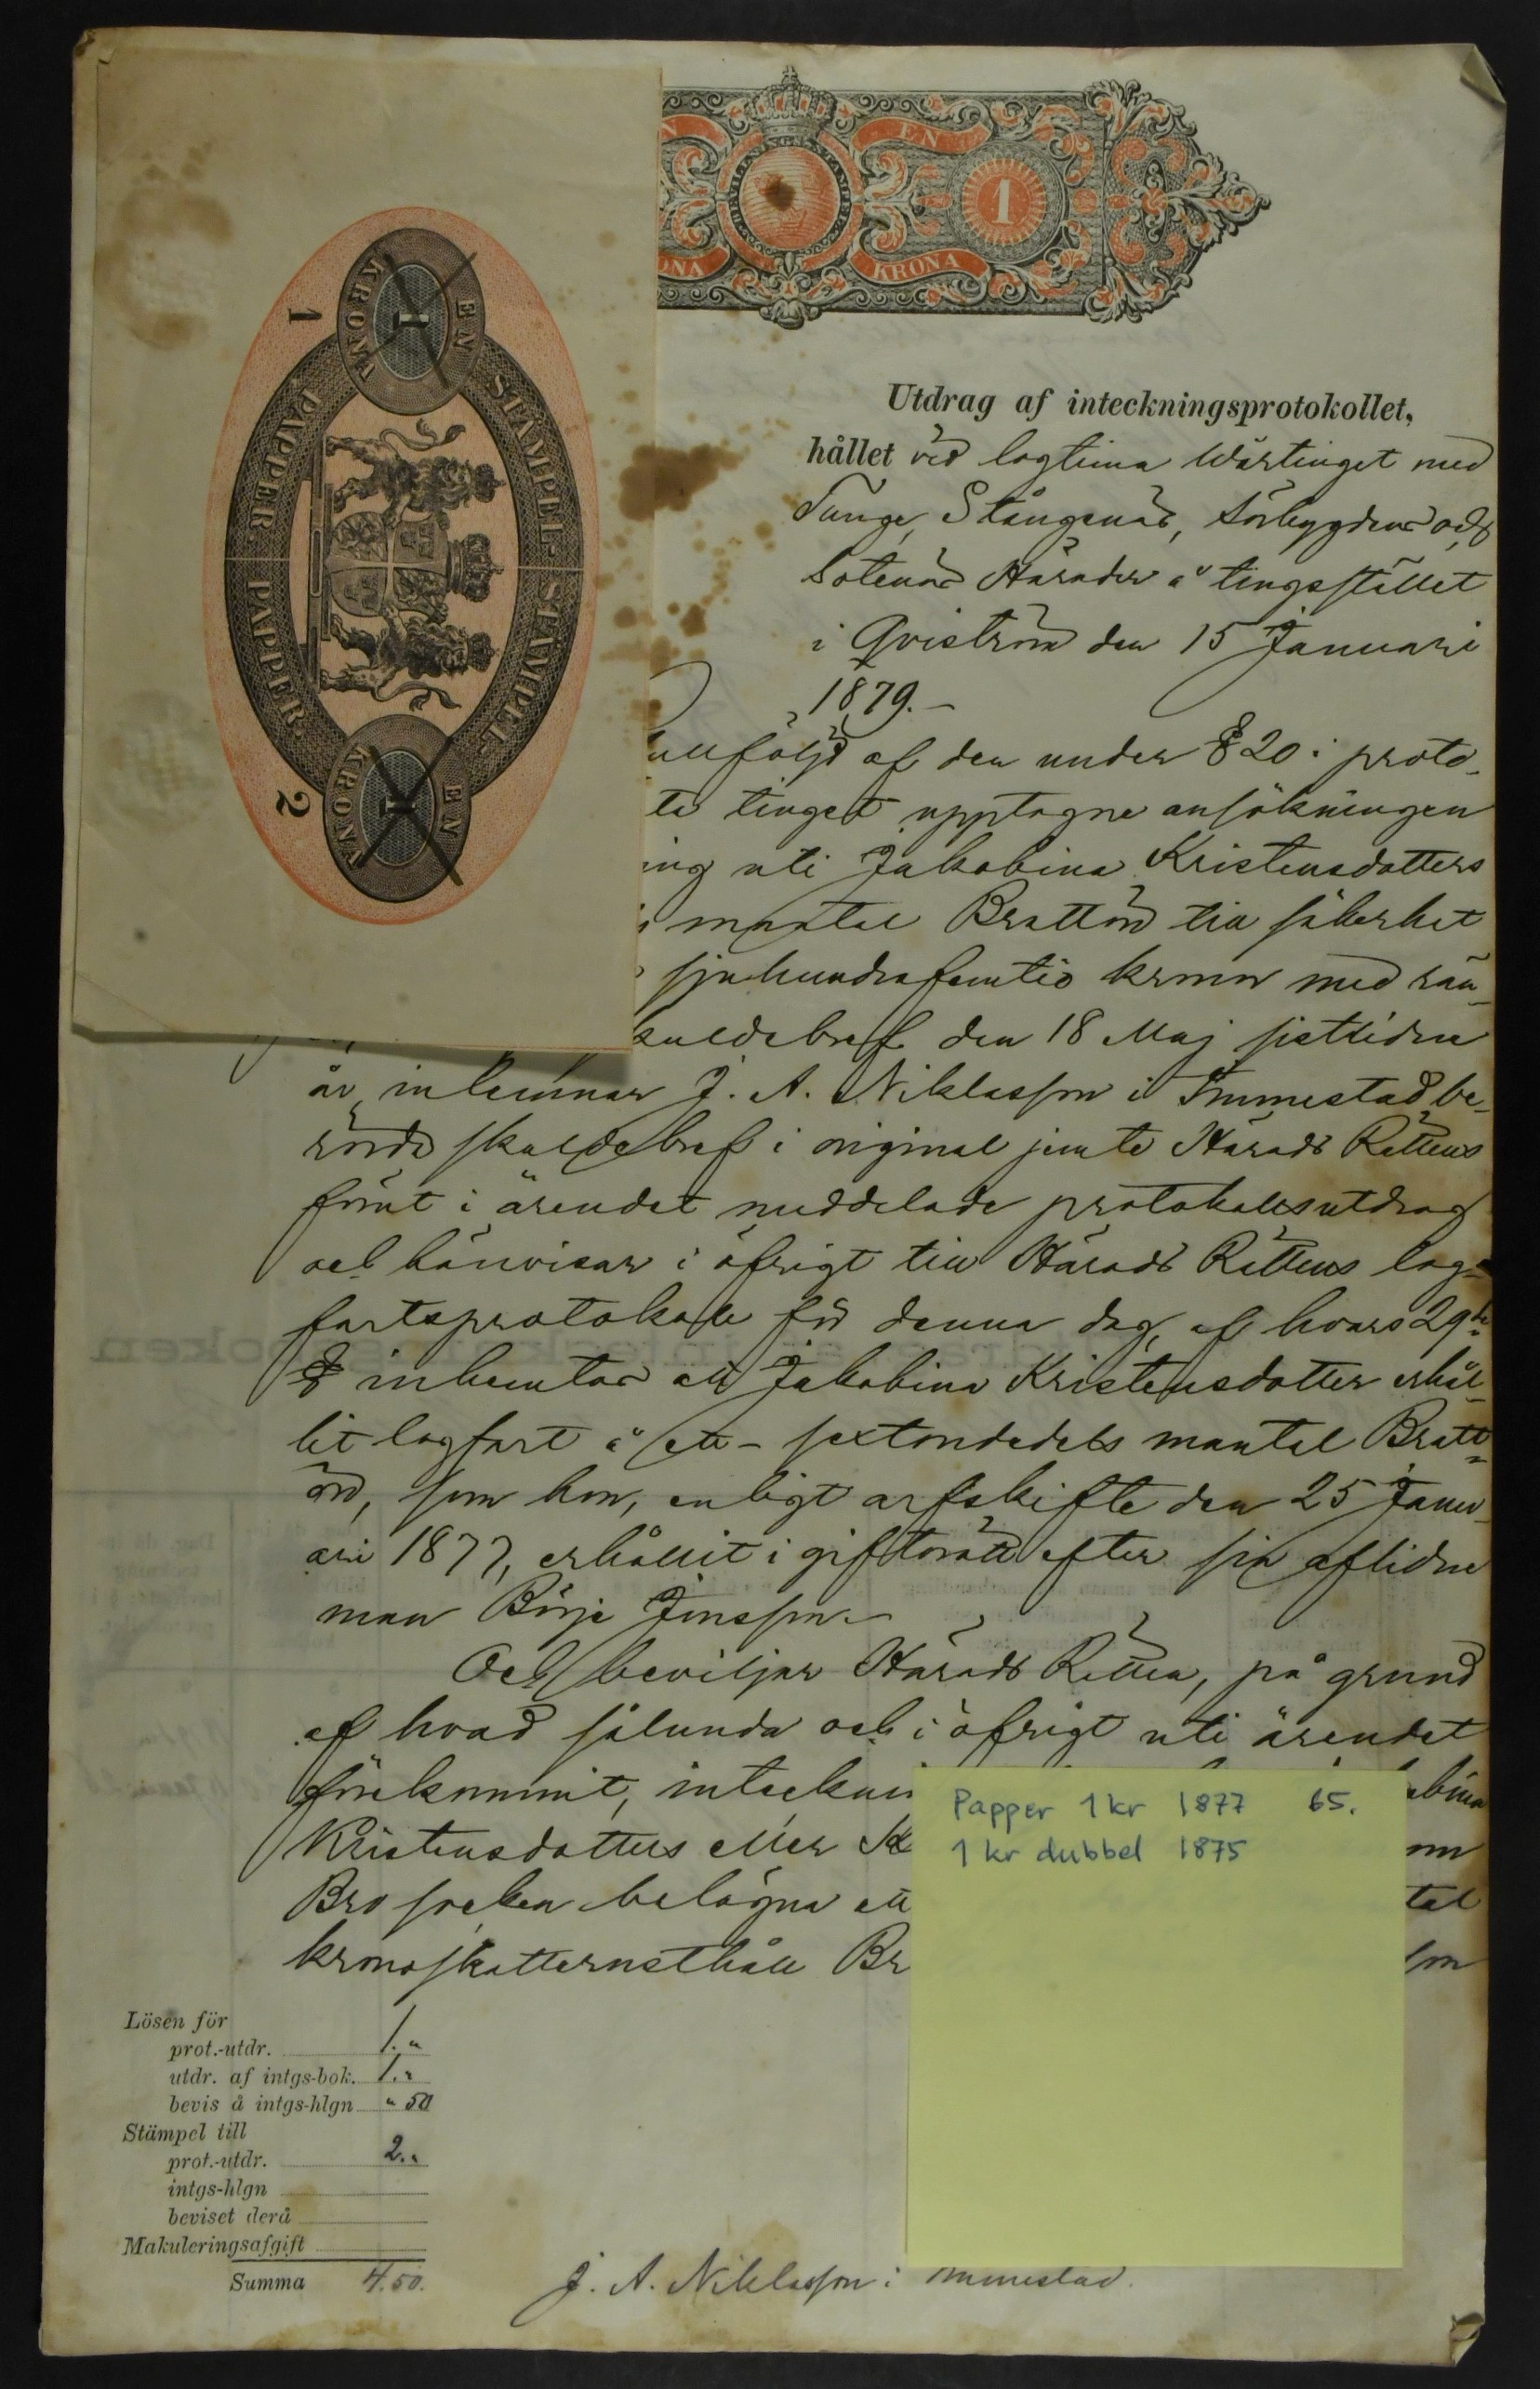 EN
KRONA
1
BEVILLNINGSSTÄMPEL
EN
KRONA
STÄMPEL- STÄMPEL-
PAPPER. PAPPER.
EN KRONA
1
EN KRONA
1
1
2
Utdrag af inteckningsprotokollet,
hållet vid lagtima Wårtinget med
Tunge, Stångenäs, Sörbygdens och
Sotenäs Härader å tingsstället
i Qviström den 15 Januari
1879.-
ullföljd af den under § 20 i proto-
ta tinget upptagne ansökningen
ing uti Jakobina Kristensdotters
mantal Brattön till säkerhet
sjuhundrafemtio kronor med rän-
kuldebref den 18 Maj sistlidne
år, inlemnar J. A. Niklasson i Immestad be-
rörde skuldebref i original jemte Härads Rättens
förut i ärendet meddelade protokollsutdrag
och hänvisar i öfrigt till Härads Rättens lag-
fartsprotokoll för denna dag, af hvars 29de
§ inhemtas att Jakobina Kristensdotter erhål-
lit lagfart å ett-sextondedels mantal Bratt-
ön, som hon, enligt arfskifte den 25 Janu-
ari 1877, erhållit i giftorätt efter sin aflidne
man Börje Jonsson.-
Och beviljar Härads Rätten, på grund
af hvad sålunda och i öfrigt uti ärendet
förekommit, inteckni
bina
Kristensdotters eller
om
Bro socken belägna ett
tal
kronoskatterusthåll Br
son
Papper 1kr 1877 65.
1 kr dubbel 1875
Lösen för
prot.-utdr. 1."
utdr. af intgs-bok. 1."
bevis å intgs-hlgn " 50
Stämpel till
prot.-utdr. 2."
intgs-hlgn
beviset derå
Makuleringsafgift
Summa 4.50.
J. A. Niklasson i mmestad.